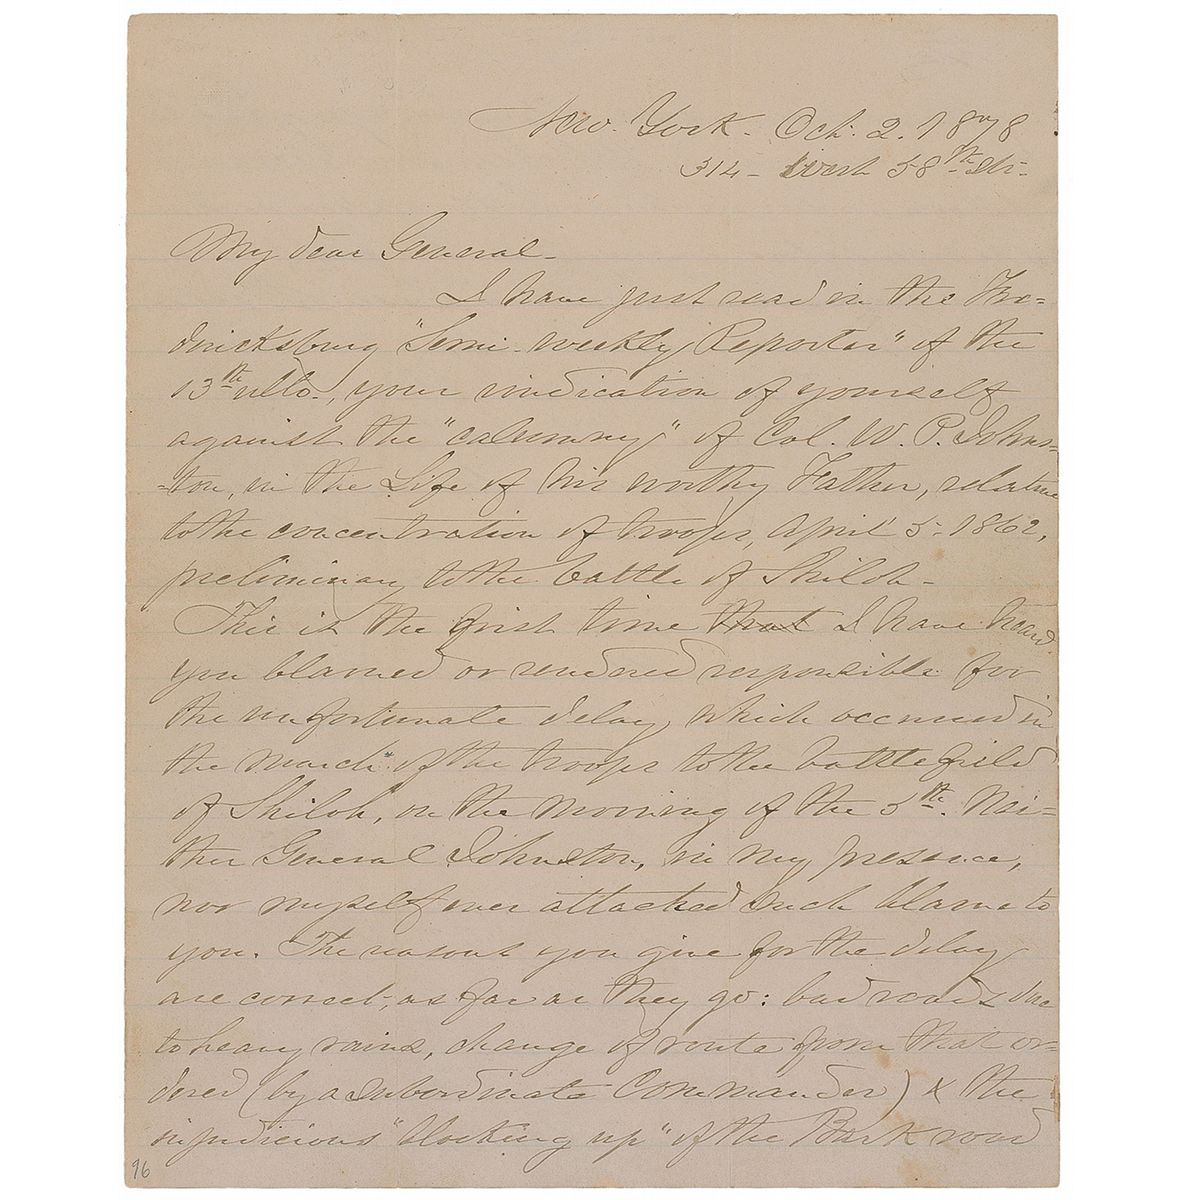 New York. Oct. 2. 1878
314 - West 58th St.
My dear General -
I have just read in the Fre-
dericksburg "Semi-weekly Reporter" of the
13th ulto., your vindication of yourself
against the "calumny" of Col. W. P. Johns-
-ton, in the Life of his worthy Father, relative
to the concentration of troops, April 5 - 1862,
preliminary to the battle of Shiloh -
This is the first time that I have heard
you blamed or rendered responsible for
the unfortunate delay, which occurred in
the march of the troops to the battlefield
of Shiloh, on the morning of the 5th. Nei-
ther General Johnston, in my presence,
nor myself ever attached such blame to
you. The reasons you give for the delay
are correct, as far as they go: bad roads due
to heavy rains, change of route from that or-
dered (by a subordinate Commander) & the
injudicious "blocking up" of the Bark road
96